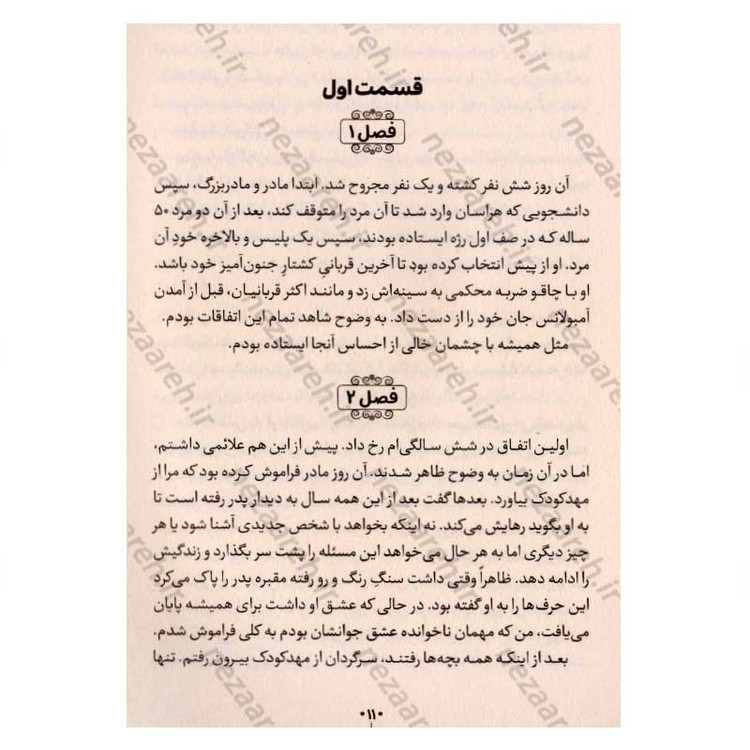 قسمت اول
فصل ۱
آن روز شش نفر کشته و یک نفر مجروح شد. ابتدا مادر و مادربزرگ، سپس
دانشجویی که هراسان وارد شد تا آن مرد را متوقف کند، بعد از آن دو مرد ۵۰
ساله که در صف اول رژه ایستاده بودند، سپس یک پلیس و بالاخره خودِ آن
مرد. او از پیش انتخاب کرده بود تا آخرین قربانیِ کشتارِ جنون‌آمیز خود باشد.
او با چاقو ضربه محکمی به سینه‌اش زد و مانند اکثر قربانیان، قبل از آمدن
آمبولانس جان خود را از دست داد. به وضوح شاهد تمام این اتفاقات بودم.
مثل همیشه با چشمان خالی از احساس آنجا ایستاده بودم.
فصل ۲
اولین اتفاق در شش سالگی‌ام رخ داد. پیش از این هم علائمی داشتم،
اما در آن زمان به وضوح ظاهر شدند. آن روز مادر فراموش کرده بود که مرا از
مهدکودک بیاورد. بعدها گفت بعد از این همه سال به دیدار پدر رفته است تا
به او بگوید رهایش می‌کند. نه اینکه بخواهد با شخص جدیدی آشنا شود یا هر
چیز دیگری اما به هر حال می‌خواهد این مسئله را پشت سر بگذارد و زندگیش
را ادامه دهد. ظاهراً وقتی داشت سنگِ رنگ و رو رفته مقبره پدر را پاک می‌کرد
این حرف‌ها را به او گفته بود. در حالی که عشق او داشت برای همیشه پایان
می‌یافت، من که مهمان ناخوانده عشق جوانشان بودم به کلی فراموش شدم.
بعد از اینکه همه بچه‌ها رفتند، سرگردان از مهدکودک بیرون رفتم. تنها
۱۱
nezaareh.ir
nezaareh.ir
nezaareh.ir
nezaareh.ir
nezaareh.ir
nezaareh.ir
nezaareh.ir
nezaareh.ir
nezaareh.ir